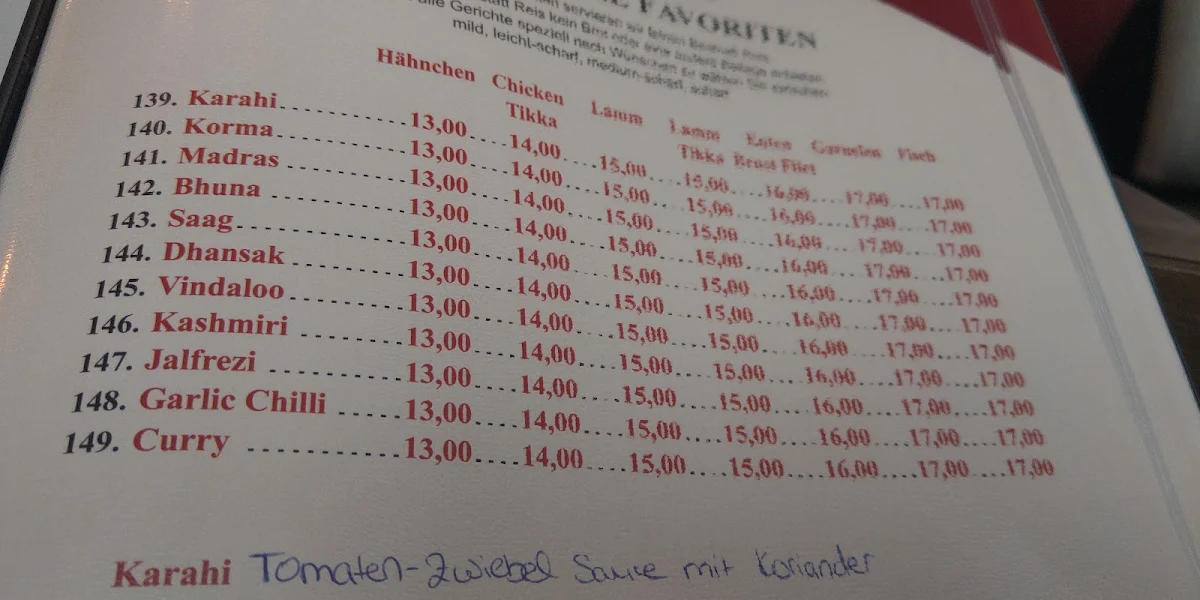 FAVORITEN
statt Reis kein Brot oder eine andere Beilage
alle Gerichte speziell nach Wünschen
mild, leicht-scharf, medium-scharf, scharf
Hähnchen Chicken Tikka Lamm Lamm Tikka Enten Brust Filet Garnelen Fisch
139. Karahi 13,00 14,00 15,00 15,00 16,00 17,00 17,00
140. Korma 13,00 14,00 15,00 15,00 16,00 17,00 17,00
141. Madras 13,00 14,00 15,00 15,00 16,00 17,00 17,00
142. Bhuna 13,00 14,00 15,00 15,00 16,00 17,00 17,00
143. Saag 13,00 14,00 15,00 15,00 16,00 17,00 17,00
144. Dhansak 13,00 14,00 15,00 15,00 16,00 17,00 17,00
145. Vindaloo 13,00 14,00 15,00 15,00 16,00 17,00 17,00
146. Kashmiri 13,00 14,00 15,00 15,00 16,00 17,00 17,00
147. Jalfrezi 13,00 14,00 15,00 15,00 16,00 17,00 17,00
148. Garlic Chilli 13,00 14,00 15,00 15,00 16,00 17,00 17,00
149. Curry 13,00 14,00 15,00 15,00 16,00 17,00 17,00
Karahi Tomaten-Zwiebel Sauce mit Koriander